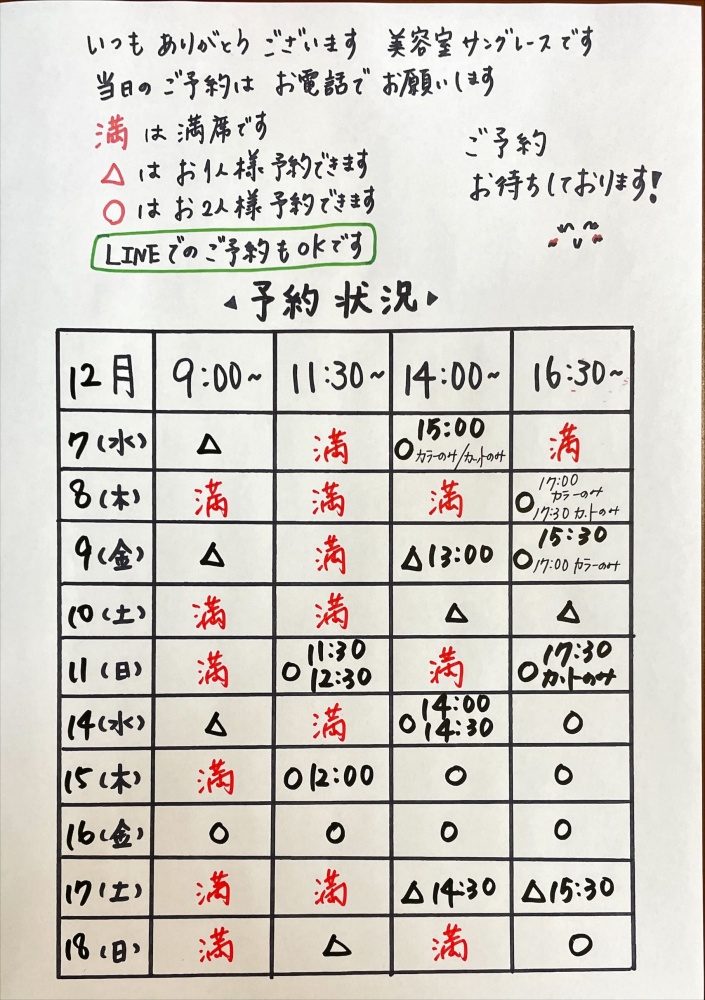 いつも ありがとう ございます 美容室 サングレースです
当日の ご予約は お電話で お願いします
満 は 満席です
△ は お1人様 予約できます
○ は お2人様 予約できます
LINEでの ご予約も OKです
ご予約
お待ちしております!
◀ 予約 状況 ▶
12月 9:00~ 11:30~ 14:00~ 16:30~
7(水) △ 満 ○15:00 カラーのみ/カットのみ 満
8(木) 満 満 満 ○17:00 カラーのみ 17:30 カットのみ
9(金) △ 満 △13:00 ○15:30 17:00 カラーのみ
10(土) 満 満 △ △
11(日) 満 ○11:30 12:30 満 ○17:30 カットのみ
14(水) △ 満 ○14:00 14:30 ○
15(木) 満 ○12:00 ○ ○
16(金) ○ ○ ○ ○
17(土) 満 満 △14:30 △15:30
18(日) 満 △ 満 ○